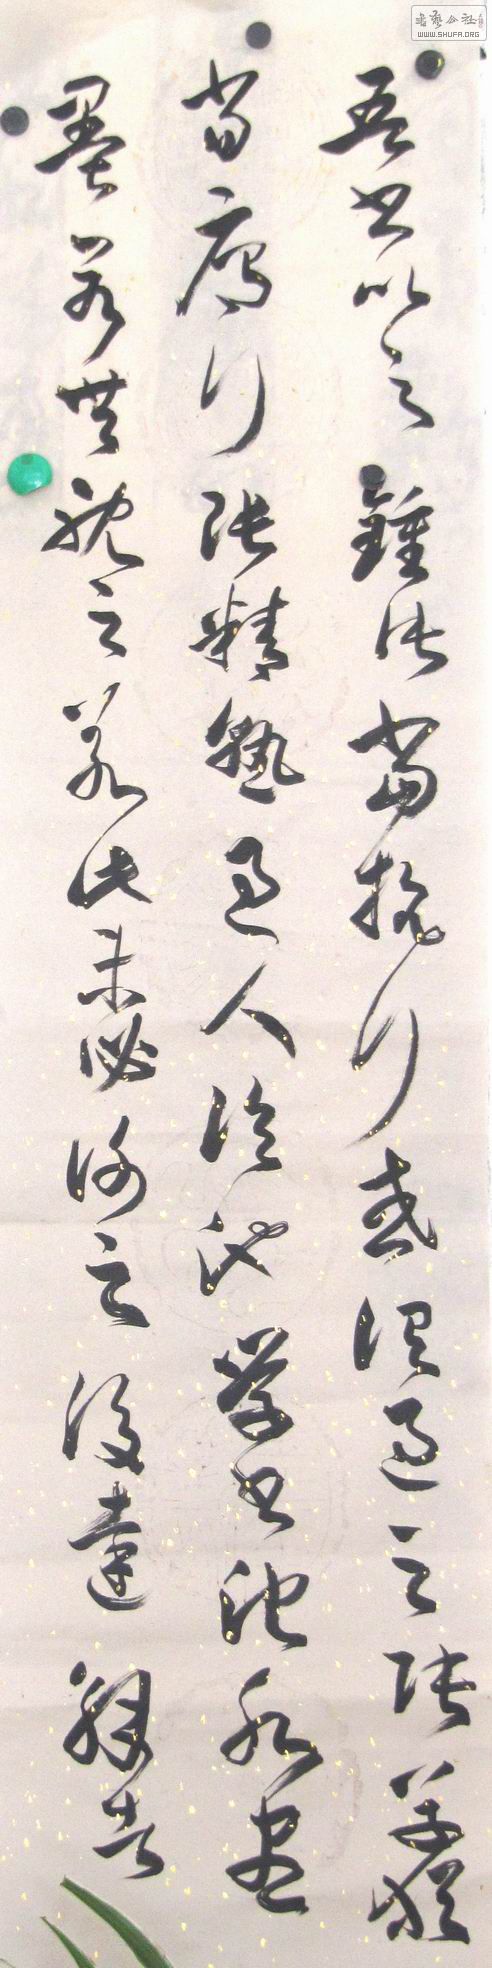 吾書比之鍾張當抗行或謂過之張草猶
當雁行張精熟過人臨池學書池水盡
墨若耽之若此未必謝之後達解者
書藝公社
WWW.SHUFA.ORG